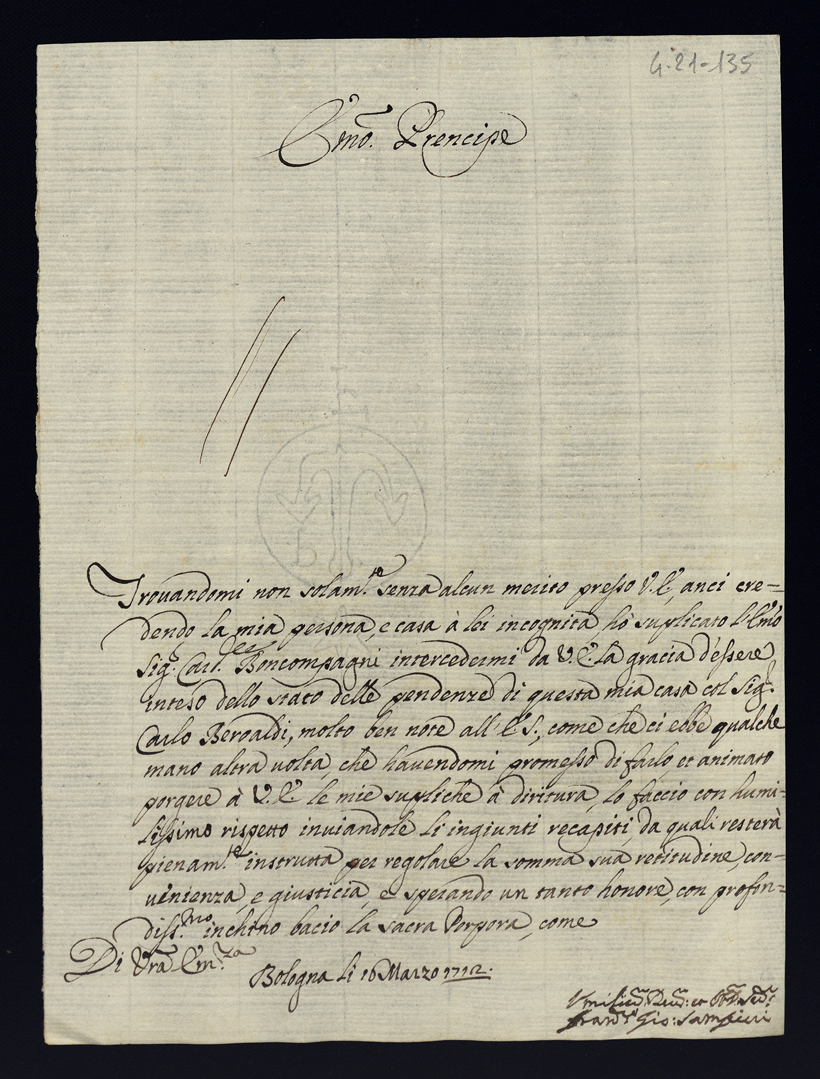 G-21-135
Em̃o. Prencipe
Trouandomi non solam.te senza alcun merito presso V.E., anci cre=
dendo la mia persona, e casa à lei incognita, hò suplicato l'Em̃o
Sig.r Card.le Boncompagni intercedermi da V.E. la gracia d'essere
inteso dello stato delle pendenze di questa mia casa col Sig.r
Carlo Beroaldi, molto ben note all'E.S., come che ci ebbe qualche
mano altra uolta, che hauendomi promesso di farlo et animato
porgere à V.E. le mie supliche à diritura, lo faccio con humi=
lissimo rispetto inuiandole li ingiunti recapiti, da quali resterà
pienam.te instrutta per regolare la somma sua retitudine, con=
uenienza, e giusticia, e sperando un tanto honore, con profon=
diss.mo inchino bacio la sacra Porpora, come
Di Vrã Em.za
Bologna li 16 Marzo 1712.
Gio: Sampieri